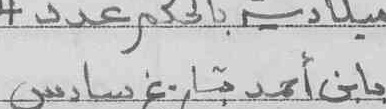 ميلادية بالحكم عدد 4
يا بن أحمد بتاريخ سادس